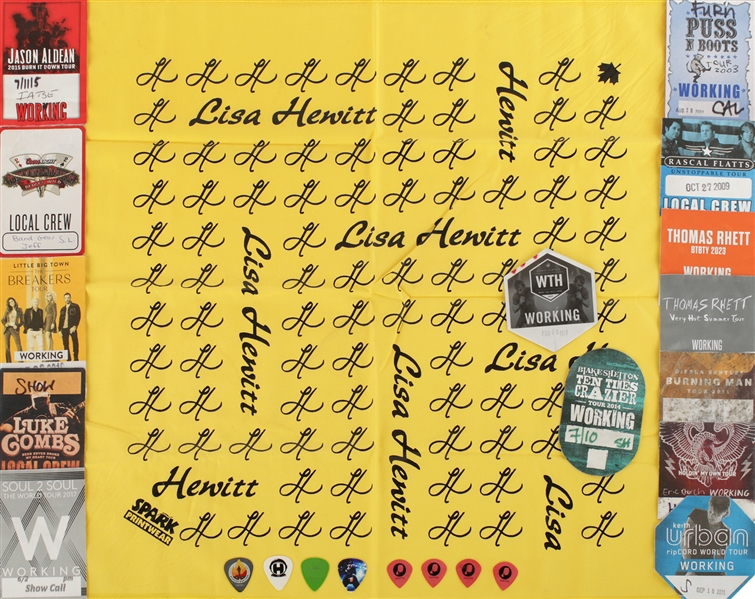 JASON ALDEAN
2015 BURN IT DOWN TOUR
7/11/15
IATSE
WORKING
LOCAL CREW
Band Gear S.L
Jeff
LITTLE BIG TOWN
THE
BREAKERS
TOUR
WORKING
SHOW
LUKE
COMBS
LOCAL CREW
SOUL 2 SOUL
THE WORLD TOUR 2017
W
WORKING
6/2 pm
Show Call
Lisa Hewitt
Hewitt
Lisa Hewitt
Lisa Hewitt
Lisa Hewitt
Lisa H
Hewitt
Lisa
SPARK
PRINTWEAR
WTH
WORKING
BLAKE SHELTON
TEN TIMES
CRAZIER
TOUR 2014
WORKING
7/10 SH
FURN
PUSS
N BOOTS
OUR
2003
WORKING
CAL
RASCAL FLATTS
UNSTOPPABLE TOUR
OCT 27 2009
LOCAL CREW
THOMAS RHETT
HTBTY 2023
WORKING
THOMAS RHETT
Very Hot Summer Tour
WORKING
BURNING MAN
TOUR 2019
HOLDIN' MY OWN TOUR
keith
urban
ripCORD WORLD TOUR
WORKING
S SEP 10 2016